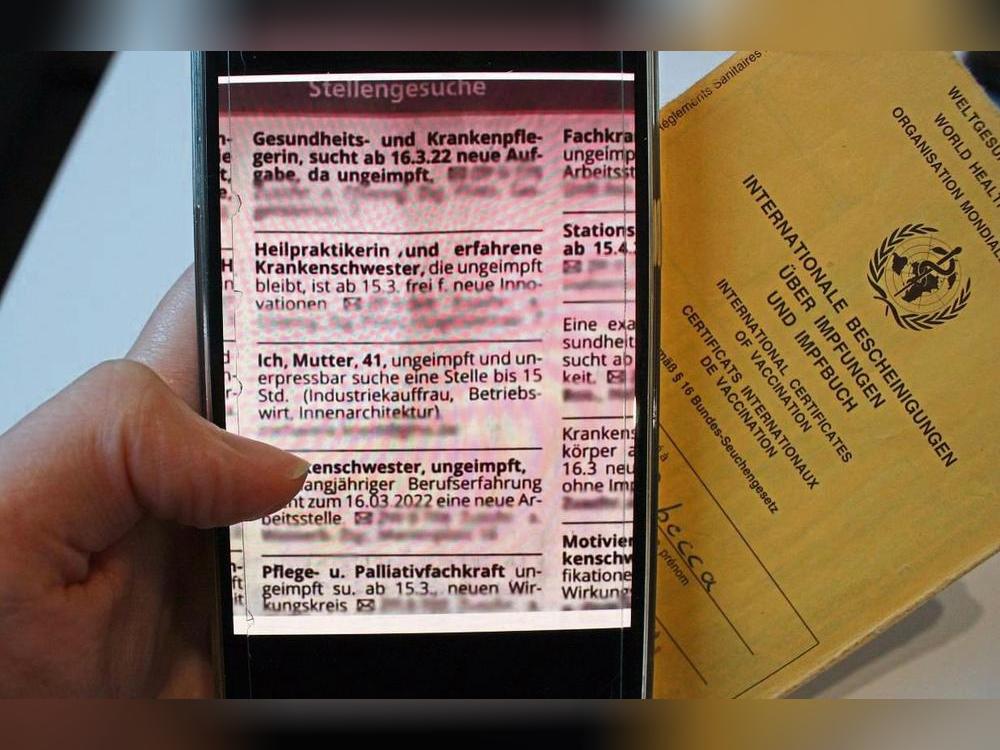 Stellengesuche
Gesundheits- und Krankenpfle-
gerin, sucht ab 16.3.22 neue Auf-
gabe, da ungeimpft.
Heilpraktikerin ,und erfahrene
Krankenschwester, die ungeimpft
bleibt, ist ab 15.3. frei f. neue Inno-
vationen
Ich, Mutter, 41, ungeimpft und un-
erpressbar suche eine Stelle bis 15
Std. (Industriekauffrau, Betriebs-
wirt, Innenarchitektur)
kenschwester, ungeimpft,
angjähriger Berufserfahrung
ht zum 16.03.2022 eine neue Ar-
beitsstelle
Pflege- u. Palliativfachkraft un-
geimpft su. ab 15.3., neuen Wir-
kungskreis
Fachkra
ungeimp
Arbeitsst
Stations
ab 15.4.
Eine exa
sundheit
sucht ab
keit.
Krankens
körper a
16.3 neu
ohne Imp
Motivier
kenschw
fikatione
Wirkung
règlements Sanitaires
WELTGESU
WORLD HEALT
ORGANISATION MONDIAL
INTERNATIONALE BESCHEINIGUNGEN
ÜBER IMPFUNGEN
UND IMPFBUCH
INTERNATIONAL CERTIFICATES
OF VACCINATION
CERTIFICATS INTERNATIONAUX
DE VACCINATION
mäß § 16 Bundes-Seuchengesetz
becca
prénom